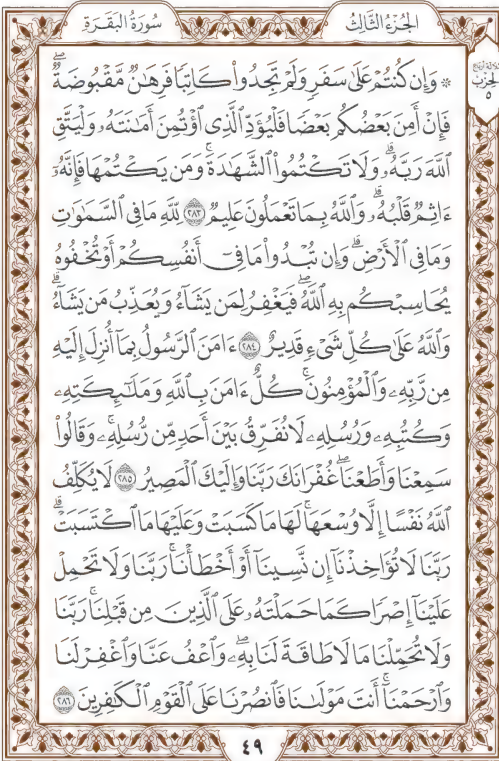 سُورَةُ البَقَرَةِ
الجُزْءُ الثَّالِثُ
الحِزْبِ
٥
۞ وَإِن كُنتُمْ عَلَىٰ سَفَرٍ وَلَمْ تَجِدُوا۟ كَاتِبًا فَرِهَٰنٌ مَّقْبُوضَةٌ ۖ
فَإِنْ أَمِنَ بَعْضُكُم بَعْضًا فَلْيُؤَدِّ ٱلَّذِى ٱؤْتُمِنَ أَمَٰنَتَهُۥ وَلْيَتَّقِ
ٱللَّهَ رَبَّهُۥ ۗ وَلَا تَكْتُمُوا۟ ٱلشَّهَٰدَةَ ۚ وَمَن يَكْتُمْهَا فَإِنَّهُۥٓ
ءَاثِمٌ قَلْبُهُۥ ۗ وَٱللَّهُ بِمَا تَعْمَلُونَ عَلِيمٌ ٢٨٣ لِّلَّهِ مَا فِى ٱلسَّمَٰوَٰتِ
وَمَا فِى ٱلْأَرْضِ ۗ وَإِن تُبْدُوا۟ مَا فِىٓ أَنفُسِكُمْ أَوْ تُخْفُوهُ
يُحَاسِبْكُم بِهِ ٱللَّهُ ۖ فَيَغْفِرُ لِمَن يَشَآءُ وَيُعَذِّبُ مَن يَشَآءُ ۗ
وَٱللَّهُ عَلَىٰ كُلِّ شَىْءٍ قَدِيرٌ ٢٨٤ ءَامَنَ ٱلرَّسُولُ بِمَآ أُنزِلَ إِلَيْهِ
مِن رَّبِّهِۦ وَٱلْمُؤْمِنُونَ ۚ كُلٌّ ءَامَنَ بِٱللَّهِ وَمَلَٰٓئِكَتِهِۦ
وَكُتُبِهِۦ وَرُسُلِهِۦ لَا نُفَرِّقُ بَيْنَ أَحَدٍ مِّن رُّسُلِهِۦ ۚ وَقَالُوا۟
سَمِعْنَا وَأَطَعْنَا ۖ غُفْرَانَكَ رَبَّنَا وَإِلَيْكَ ٱلْمَصِيرُ ٢٨٥ لَا يُكَلِّفُ
ٱللَّهُ نَفْسًا إِلَّا وُسْعَهَا ۚ لَهَا مَا كَسَبَتْ وَعَلَيْهَا مَا ٱكْتَسَبَتْ ۗ
رَبَّنَا لَا تُؤَاخِذْنَآ إِن نَّسِينَآ أَوْ أَخْطَأْنَا ۚ رَبَّنَا وَلَا تَحْمِلْ
عَلَيْنَآ إِصْرًا كَمَا حَمَلْتَهُۥ عَلَى ٱلَّذِينَ مِن قَبْلِنَا ۚ رَبَّنَا
وَلَا تُحَمِّلْنَا مَا لَا طَاقَةَ لَنَا بِهِۦ ۖ وَٱعْفُ عَنَّا وَٱغْفِرْ لَنَا
وَٱرْحَمْنَآ ۚ أَنتَ مَوْلَىٰنَا فَٱنصُرْنَا عَلَى ٱلْقَوْمِ ٱلْكَٰفِرِينَ ٢٨٦
٤٩